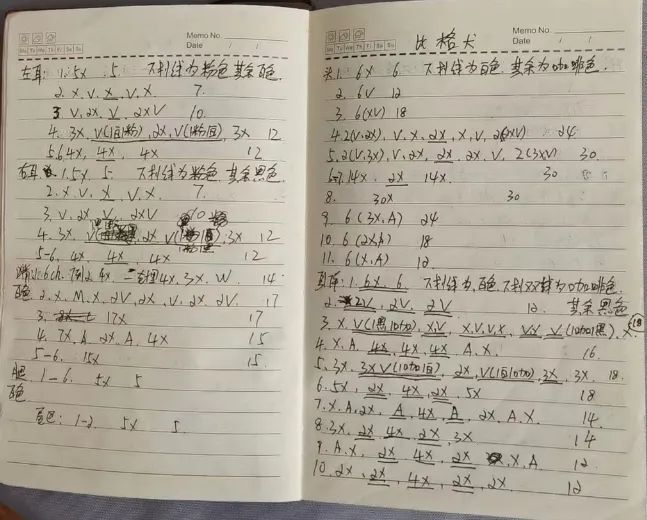 Memo No.
Mo Tu We Th Fr Sa Su
Date / /
左耳: 1. 5x 5. 下划线为粉色 其余白色.
2. x. V. x. V. x. 7.
3 V. 2x. V. 2xV 10.
4. 3x. V(1白1粉), 2x, V(1粉1白), 3x 12
5.6 4x, 4x, 4x 12
右耳 1. 5x. 5 下划线为粉色 其余黑色.
2. x. V. V. x. 7.
3. V. 2x. V. 2xV 10
4. 3x. 2x 3x 12
5-6. 4x. 4x. 4x 12
6ch. 4x. 4x. 3x. W. 14.
白色 2. x. M. x. 2V, 2x, V. 2x. 2V. 17
3. 17x 17
4. 7x. A. 2x. A. 4x 15
5-6. 15x 15.
1-6. 5x 5
白色.
1-2 5x 5.
比格犬
Memo No.
Mo Tu We Th Fr Sa Su
Date / /
头1. 6x 6. 下划线为白色, 其余为咖啡色.
2. 6V 12
3. 6(xV) 18
4. 2(V.2x), V. x. 2x, x, V, 2(xV) 24
5. 2(V.3x), V. 2x, 2x, 2x, V, 2(3xV) 30.
6-7. 14x. 2x 14x. 30
8. 30x 30
9. 6(3x, A) 24
10. 6(2x,A) 18
11. 6(x, A) 12
1. 6x. 6. 下划线为白色, 下划双线为咖啡色.
2. 2V, 2V, 2V 12. 其余黑色
3. x. V(1黑1咖), xV, x.V.V.x, Vx, V(1咖1黑), x. 18
4. x. A. 4x, 4x, 4x A. x. 16
5. 3x. 3x V(1咖1白), 2x, V(1白1咖), 3x, 3x. 18.
6. 5x, 2x, 4x, 2x, 5x 18
7. x. A, 2x, A, 4x, A, 2x, A. x. 14.
8. 3x, 2x 4x, 2x, 3x 14
9. A. x, 2x, 4x, 2x x. A 12
10. 2x, 2x, 4x, 2x, 2x 12